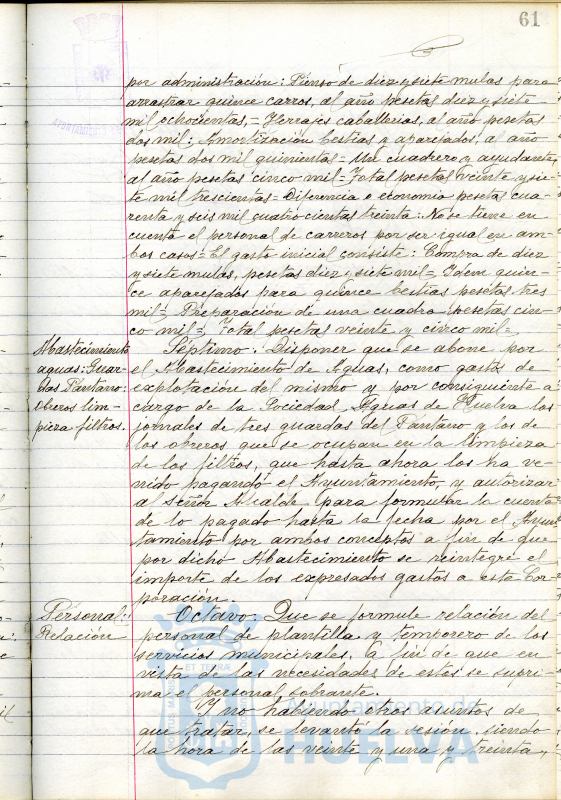 61
por administración: Pienso de diez y siete mulas para
arrastrar quince carros, al año pesetas diez y siete
mil ochocientas,= Herrajes caballerías, al año pesetas
dos mil: Amortización bestias y aparejados, al año
pesetas dos mil quinientas= Un cuadrero y ayudante,
al año pesetas cinco mil= Total pesetas veinte y sie-
te mil trescientas= Diferencia o economía pesetas cua-
renta y seis mil cuatrocientas treinta: No se tiene en
cuenta el personal de carreros por ser igual en am-
bos casos= El gasto inicial consiste: Compra de diez
y siete mulas, pesetas diez y siete mil= Idem quin-
ce aparejados para quince bestias pesetas tres
mil= Preparación de una cuadra pesetas cin-
co mil=, Total pesetas veinte y cinco mil=,
Abastecimiento
aguas: Guar-
das Pantano:
Obreros lim-
pieza filtros.
Séptimo: Disponer que se abone por
el Abastecimiento de Aguas, como gastos de
explotación del mismo y por consiguiente a
cargo de la Sociedad Aguas de Huelva los
jornales de tres guardas del Pantano y los de
los obreros que se ocupan en la limpieza
de los filtros, que hasta ahora los ha ve-
nido pagando el Ayuntamiento, y autorizar
al señor Alcalde para formular la cuenta
de lo pagado hasta la fecha por el Ayun-
tamiento por ambos conceptos a fin de que
por dicho Abastecimiento se reintegre el
importe de los expresados gastos a esta Cor-
poración.
Personal:
Relación
Octavo: Que se formule relación del
personal de plantilla y temporero de los
servicios municipales, a fin de que en
vista de las necesidades de estos se supri-
ma el personal sobrante.
Y no habiendo otros asuntos de
que tratar, se levantó la sesión, siendo
la hora de las veinte y una y treinta,
Ayuntamiento de
HUELVA